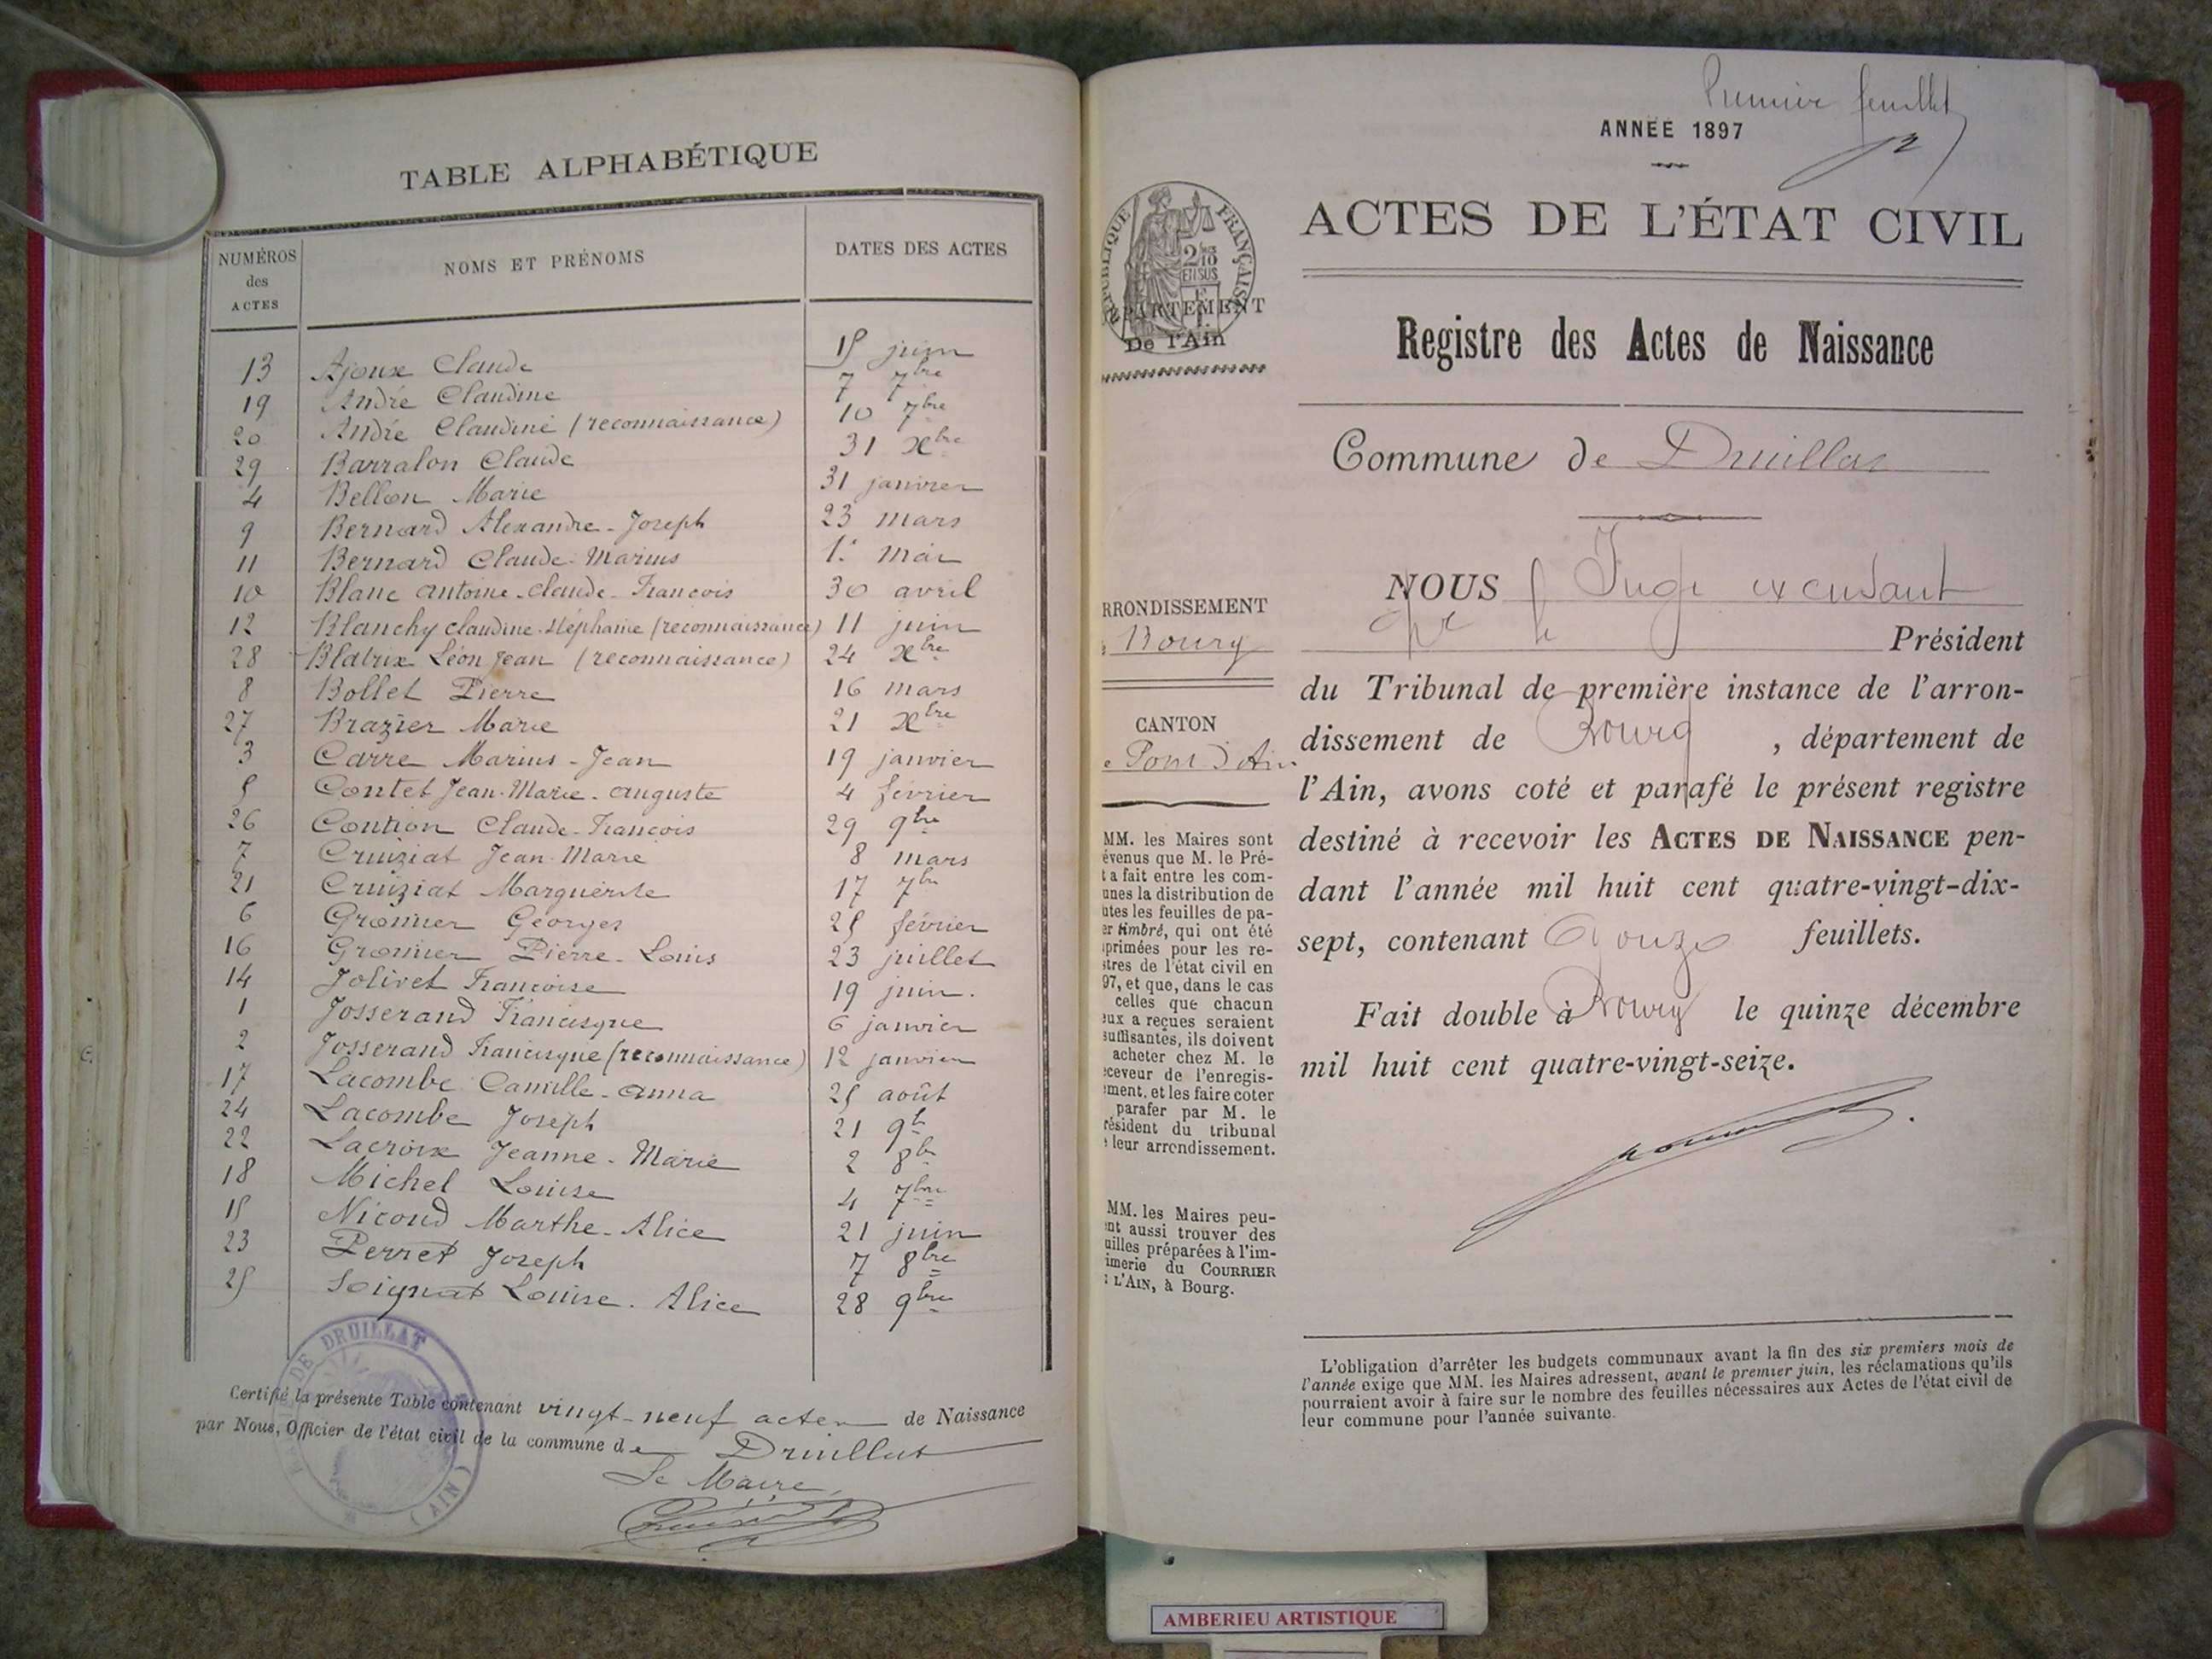 TABLE ALPHABÉTIQUE
NUMÉROS des ACTES NOMS ET PRÉNOMS DATES DES ACTES
13 Ajoux Claude 15 juin
19 André Claudine 7 7bre
20 André Claudine (reconnaissance) 10 7bre
29 Barralon Claude 31 Xbre
4 Bellon Marie 31 janvier
9 Bernard Alexandre-Joseph 23 mars
11 Bernard Claude-Marius 1er mai
10 Blanc Antoine-Claude-François 30 avril
12 Blanchy Claudine-Stéphanie (reconnaissance) 11 juin
28 Blatrix Léon Jean (reconnaissance) 24 Xbre
8 Bollet Pierre 16 mars
27 Brazier Marie 21 Xbre
3 Carre Marius-Jean 19 janvier
5 Contet Jean-Marie-Auguste 4 février
26 Contion Claude-François 29 9bre
7 Cruiziat Jean-Marie 8 mars
21 Cruiziat Marguerite 17 7bre
6 Gromier Georges 25 février
16 Gromier Pierre-Louis 23 juillet
14 Jolivet Françoise 19 juin.
1 Josserand Francisque 6 janvier
2 Josserand Francisque (reconnaissance) 12 janvier
17 Lacombe Camille-Anna 25 août
24 Lacombe Joseph 21 9b
22 Lacroix Jeanne-Marie 2 8b
18 Michel Louise 4 7bre
15 Nicoud Marthe-Alice 21 juin
23 Perret Joseph 7 8bre
25 Soignat Louise-Alice 28 9bre
Certifié la présente Table contenant vingt-neuf actes de Naissance
par Nous, Officier de l'état civil de la commune de Druillat
Le Maire,
DE DRUILLAT
(AIN)
Premier feuillet
ANNÉE 1897
RÉPUBLIQUE FRANÇAISE
2/10 EN SUS
ÉPARTEMENT
De l'Ain
ACTES DE L'ÉTAT CIVIL
Registre des Actes de Naissance
Commune de Druillat
RRONDISSEMENT
Bourg
CANTON
e Pont d'Ain
MM. les Maires sont
évenus que M. le Pré-
t a fait entre les com-
unes la distribution de
utes les feuilles de pa-
er timbré, qui ont été
primées pour les re-
stres de l'état civil en
97, et que, dans le cas
celles que chacun
eux a reçues seraient
suffisantes, ils doivent
acheter chez M. le
ceveur de l'enregis-
ment, et les faire coter
parafer par M. le
résident du tribunal
leur arrondissement.
MM. les Maires peu-
nt aussi trouver des
uilles préparées à l'im-
imerie du COURRIER
L'AIN, à Bourg.
NOUS Juge
Président
du Tribunal de première instance de l'arron-
dissement de Bourg, département de
l'Ain, avons coté et parafé le présent registre
destiné à recevoir les ACTES DE NAISSANCE pen-
dant l'année mil huit cent quatre-vingt-dix-
sept, contenant feuillets.
Fait double à Bourg le quinze décembre
mil huit cent quatre-vingt-seize.
L'obligation d'arrêter les budgets communaux avant la fin des six premiers mois de
l'année exige que MM. les Maires adressent, avant le premier juin, les réclamations qu'ils
pourraient avoir à faire sur le nombre des feuilles nécessaires aux Actes de l'état civil de
leur commune pour l'année suivante.
AMBERIEU ARTISTIQUE